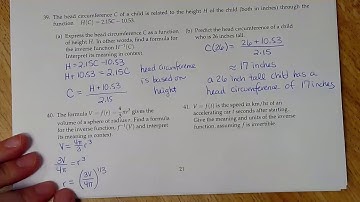 39. The head circumference C of a child is related to the height H of the child (both in inches) through the
function H(C) = 2.15C − 10.53.
(a) Express the head circumference C as a function
of height H. In other words, find a formula for
the inverse function H⁻¹(C)
Interpret its meaning in context.
H = 2.15C − 10.53
H + 10.53 = 2.15C
C = H + 10.53 / 2.15
head circumference
is based on
height
(b) Predict the head circumference of a child
who is 26 inches tall.
C(26) = 26 + 10.53 / 2.15
≈ 17 inches
a 26 inch tall child has a
head circumference of 17 inches
40. The formula V = f(r) = 4/3 πr³ gives the
volume of a sphere of radius r. Find a formula
for the inverse function, f⁻¹(V) and interpret
its meaning in context.
V = 4π/3 r³
3V/4π = r³
r = (3V/4π)^1/3
41. V = f(t) is the speed in km/hr of an
accelerating car t seconds after starting.
Give the meaning and units of the inverse
function, assuming f is invertible.
21